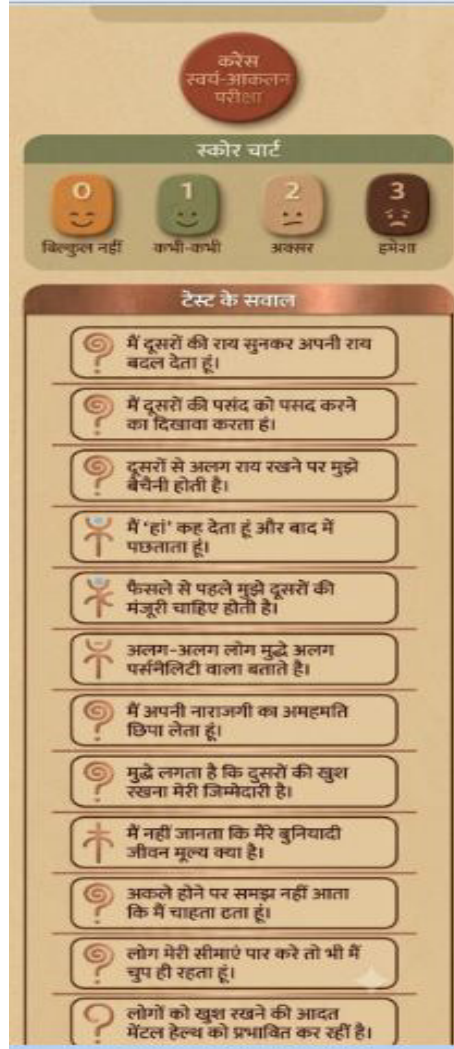 करेंस
स्वयं-आकलन
परीक्षा
स्कोर चार्ट
0
1
2
3
बिल्कुल नहीं
कभी-कभी
अक्सर
हमेशा
टेस्ट के सवाल
मैं दूसरों की राय सुनकर अपनी राय
बदल देता हूं।
मैं दूसरों की पसंद को पसद करने
का दिखावा करता हं।
दूसरों से अलग राय रखने पर मुझे
बेचैनी होती है।
मैं 'हां' कह देता हूं और बाद में
पछताता हूं।
फैसले से पहले मुझे दूसरों की
मंजूरी चाहिए होती है।
अलग-अलग लोग मुद्धे अलग
पर्सनैलिटी वाला बताते है।
मैं अपनी नाराजगी का अमहमति
छिपा लेता हूं।
मुद्धे लगता है कि दुसरों की खुश
रखना मेरी जिम्मेदारी है।
मैं नहीं जानता कि मैरे बुनियादी
जीवन मूल्य क्या है।
अकले होने पर समझ नहीं आता
कि मैं चाहता दता हूं।
लोग मेरी सीमाएं पार करे तो भी मैं
चुप ही रहता हूं।
लोगों को खुश रखने की आदत
मेंटल हेल्थ को प्रभावित कर रहीं है।